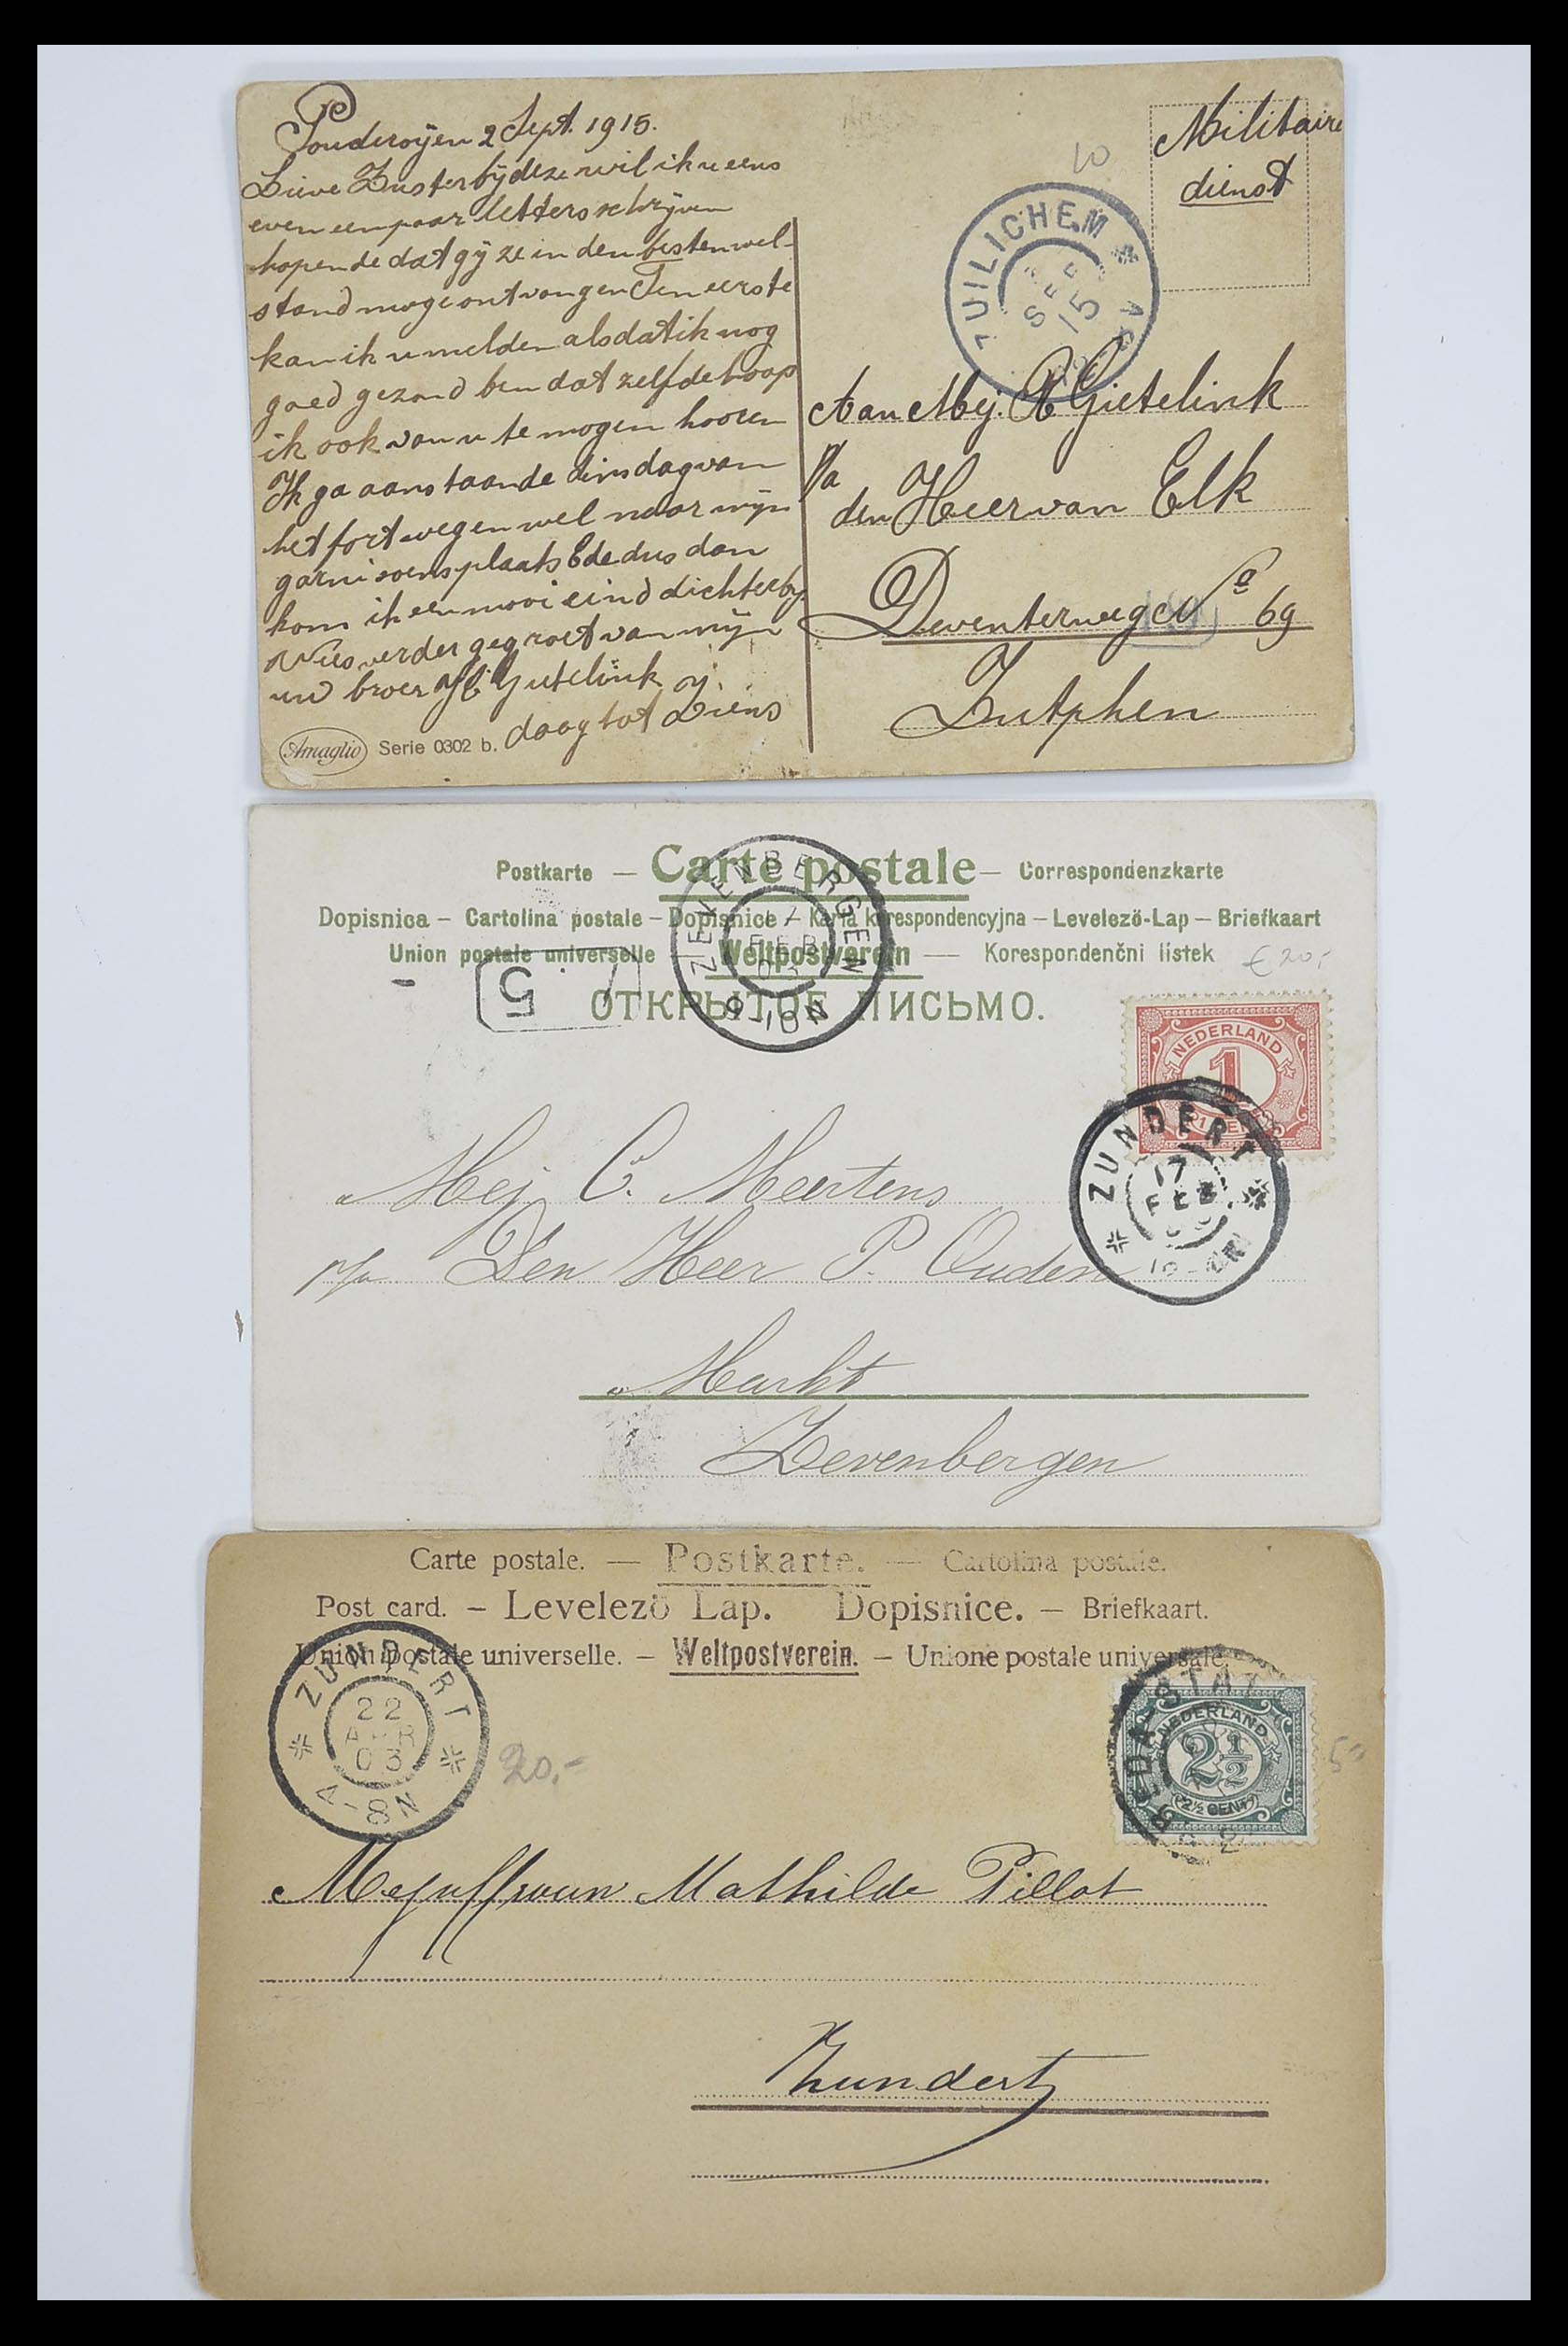 Pouderoijen 2 Sept. 1915.
Lieve Zuster bij deze wil ik u eens
even een paar letters schrijven
hopende dat gij ze in den besten wel-
stand moge ontvangen Ten eerste
kan ik u melden als dat ik nog
goed gezond ben dat zelfde hoop
ik ook van u te mogen hooren
Ik ga aanstaande dinsdag van
het fort wegen wel naar mijn
garnisoensplaats Ede dus dan
kom ik een mooi eind dichterbij
Nu verder gegroet van mijn
uw broer Gietelink
daag tot ziens
Amaglio Serie 0302 b.
Militaire
dienst
10
ZUILICHEM
SEP
15
Aan Mej. A Gietelink
p/a
den Heer van Elk
Deventerweg No 69
Zutphen
Postkarte – Carte postale – Correspondenzkarte
Dopisnica – Cartolina postale – Dopisnice – Karta korespondencyjna – Levelező-Lap – Briefkaart
Union postale universelle – Weltpostverein — Korespondenčni listek
€ 20,-
ОТКРЫТОЕ ПИСЬМО.
ZEVENBERGEN
17
FEB
03
9-10N
5
NEDERLAND
1
1 CENT
ZUNDERT
17
FEB
Mej C. Meertens
p/a Den Heer P. Ouden
Markt
Zevenbergen
Carte postale. — Postkarte. — Cartolina postale.
Post card. – Levelező Lap. Dopisnice. – Briefkaart.
Union postale universelle. – Weltpostverein. – Unione postale universale.
ZUNDERT
22
APR
03
4-8N
20,-
BREDA-STAT
NEDERLAND
2½
2½ CENT
Mejuffrouw Mathilde Pillot
Zundert